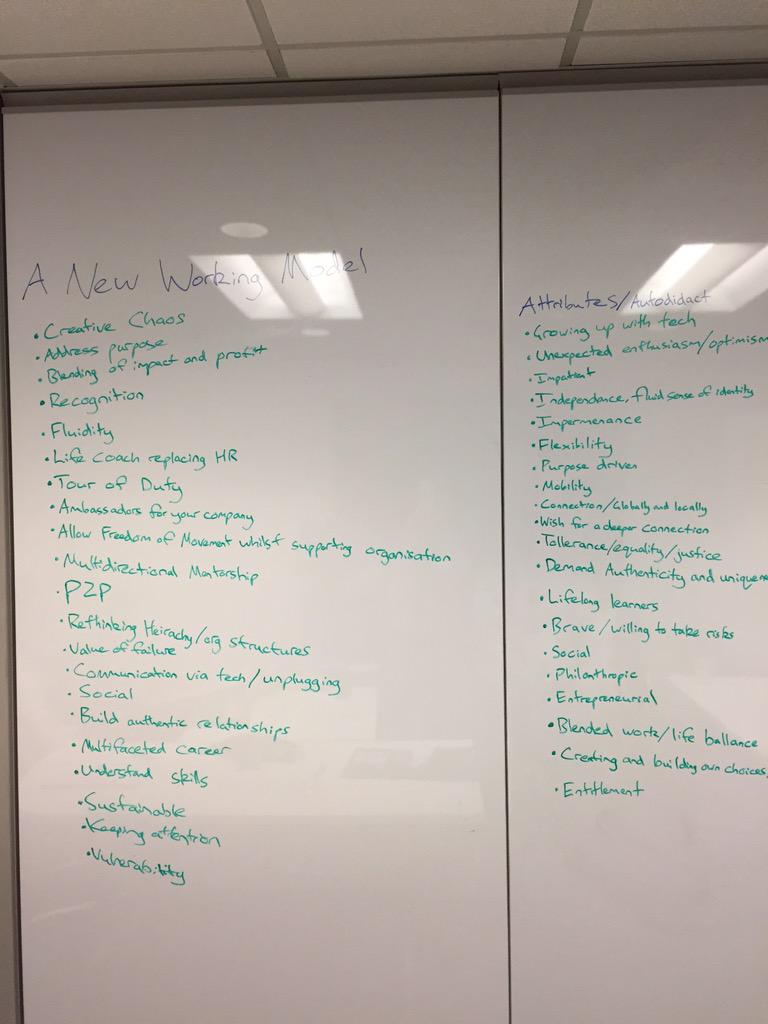 A New Working Model
• Creative Chaos
• Address purpose
• Blending of impact and profit
• Recognition
• Fluidity
• Life coach replacing HR
• Tour of Duty
• Ambassadors for your company
• Allow Freedom of Movement whilst supporting organisation
• Multidirectional Mentorship
• P2P
• Rethinking Heirachy/org structures
• Value of failure
• Communication via tech/unplugging
• Social
• Build authentic relationships
• Multifaceted career
• Understand skills
• Sustainable
• Keeping attention
• Vulnerability
Attributes/Autodidact
• Growing up with tech
• Unexpected enthusiasm/optimism
• Impatient
• Independance, fluid sense of identity
• Impermenance
• Flexibility
• Purpose driven
• Mobility
• Connection/Globally and locally
• Wish for a deeper connection
• Tollerance/equality/justice
• Demand Authenticity and uniquene
• Lifelong learners
• Brave/willing to take risks
• Social
• Philanthropic
• Entrepreneurial
• Blended work/life ballance
• Creating and building own choices,
• Entitlement